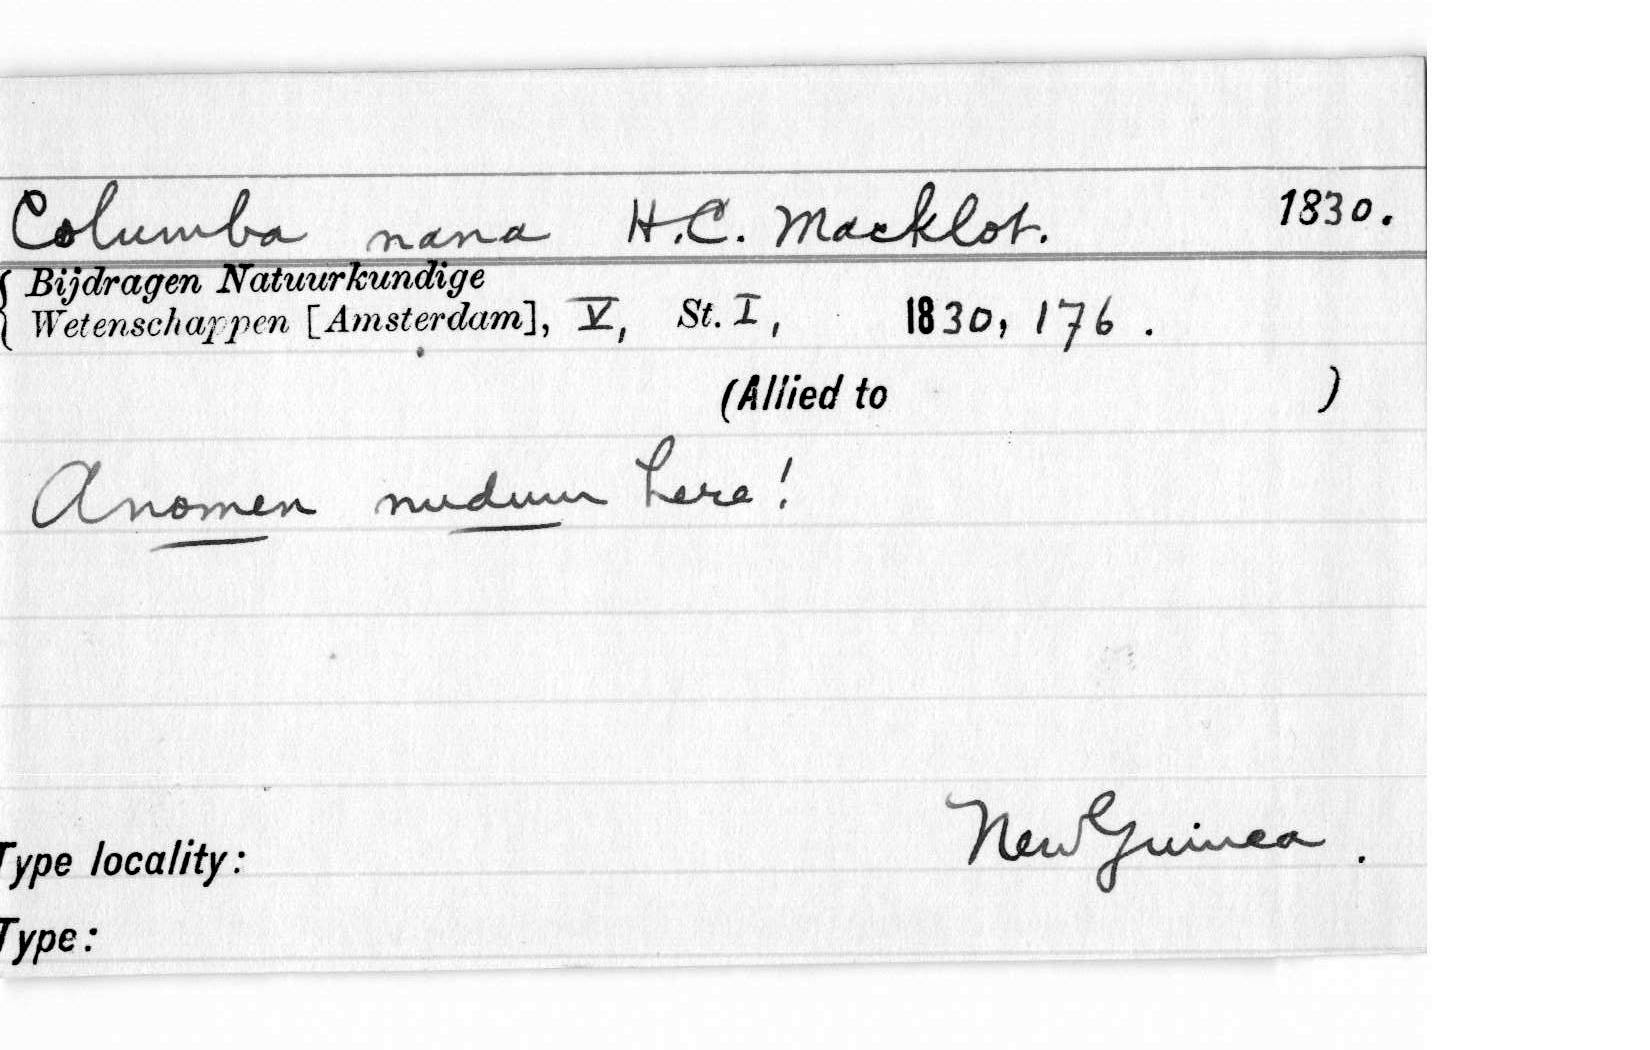 Columba nana H.C. Macklot. 1830.
Bijdragen Natuurkundige
Wetenschappen [Amsterdam], V, St. I, 1830, 176.
(Allied to )
A nomen nudum here!
New Guinea.
Type locality:
Type: